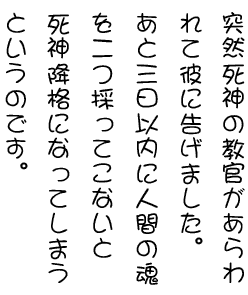 突然死神の教官があらわ
れて彼に告げました。
あと三日以内に人間の魂
を二つ採ってこないと
死神降格になってしまう
というのです。